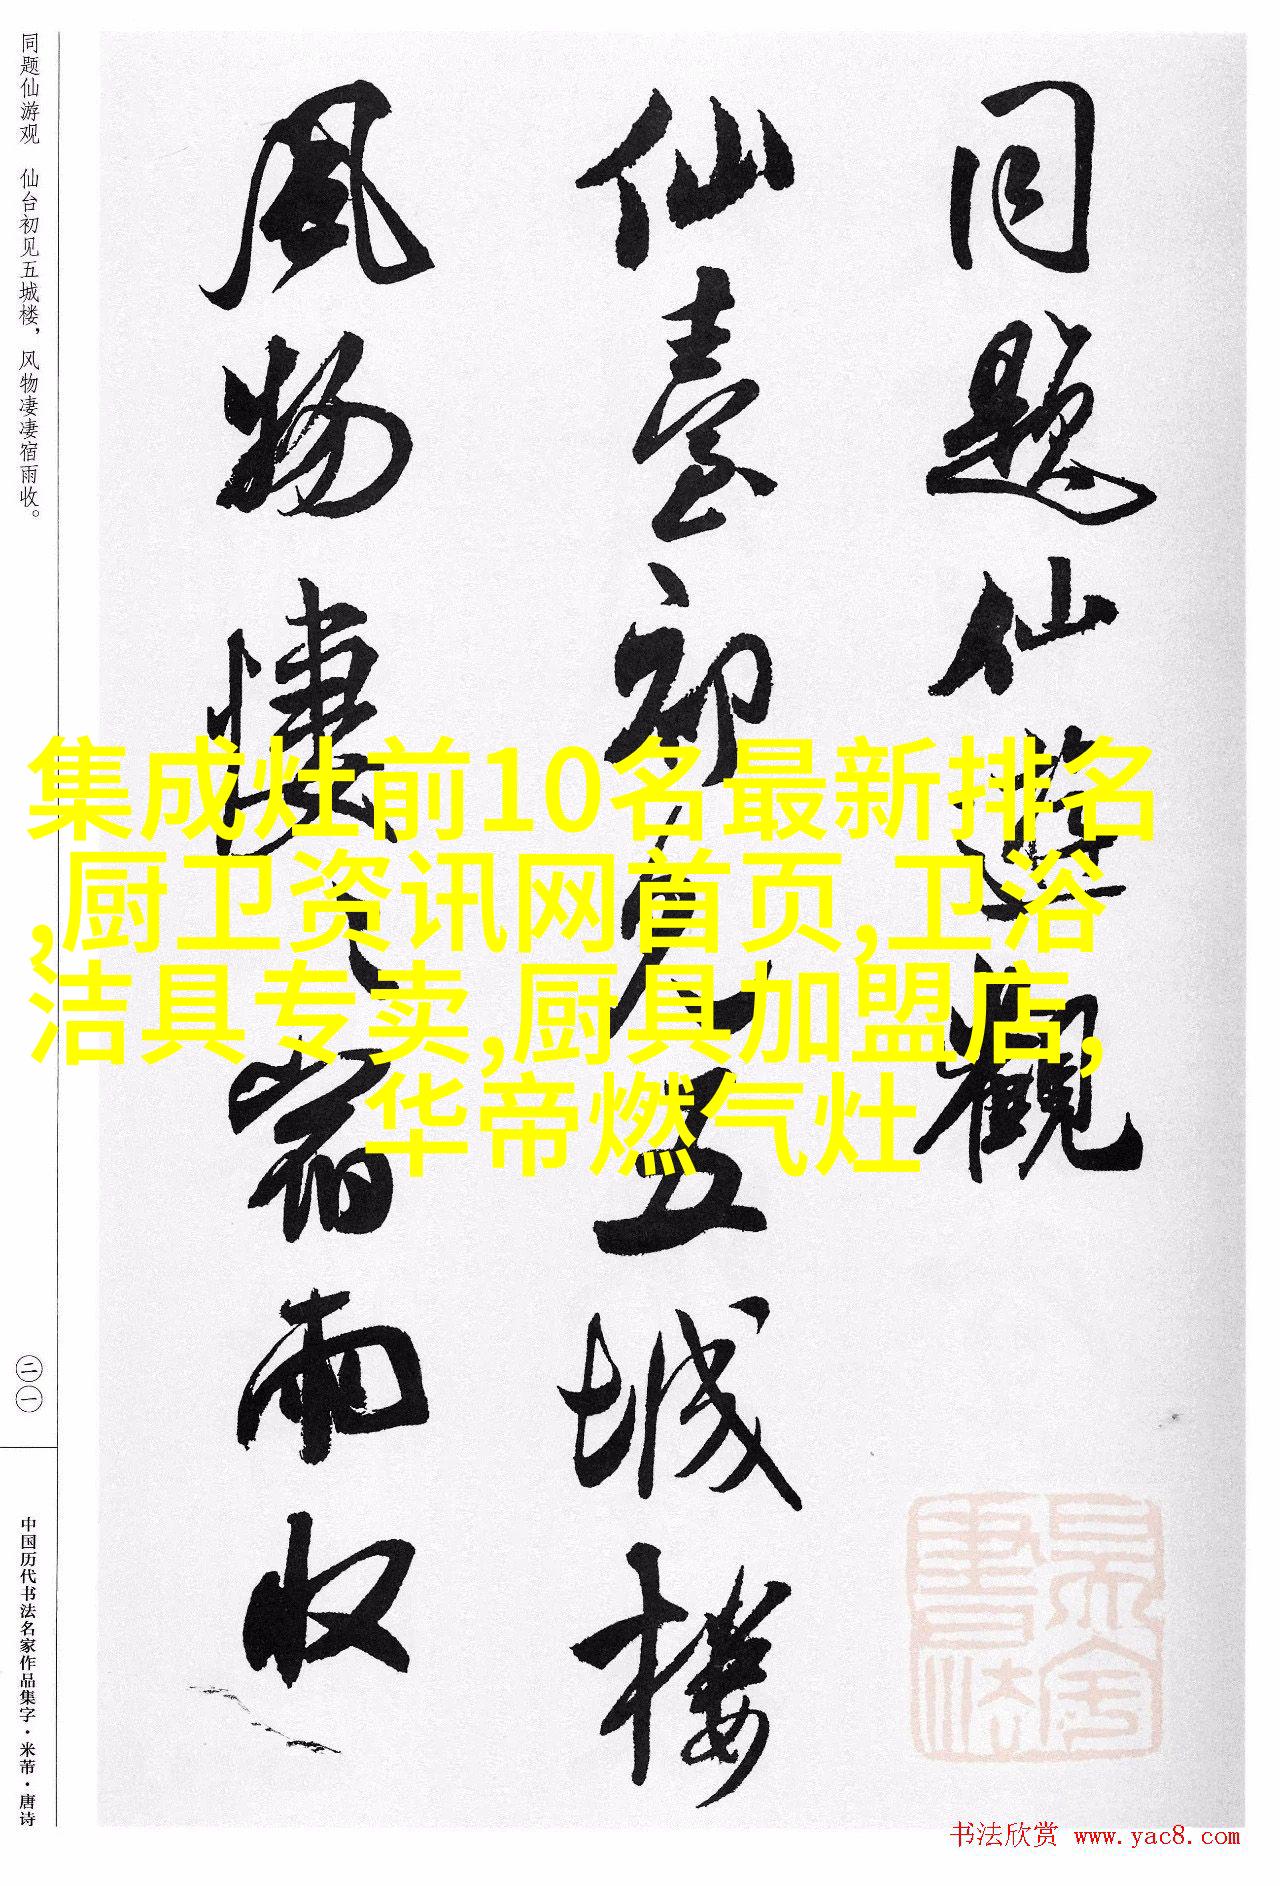 同题仙游观 仙台初见五城楼，风物凄凄宿雨收。
同题仙游观
仙台初见五城楼
風物悽〻宿雨收
集成灶前10名最新排名
,厨卫资讯网首页,卫浴
洁具专卖,厨具加盟店,
华帝燃气灶
二一
中国历代书法名家作品集字·米芾·唐诗
书法欣赏 www.yac8.com